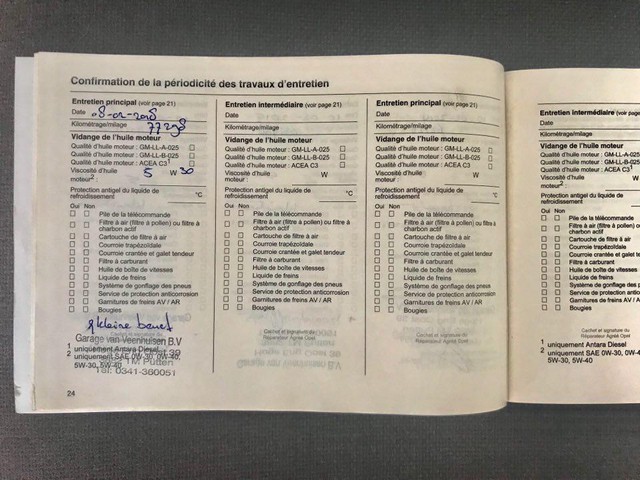 Confirmation de la périodicité des travaux d'entretien
Entretien principal (voir page 21)
Date 08-02-2018
Kilométrage/milage 77298
Vidange de l'huile moteur
Qualité d'huile moteur : GM-LL-A-025
Qualité d'huile moteur : GM-LL-B-025
Qualité d'huile moteur : ACEA C3¹
Viscosité d'huile moteur² : 5 W 30
Protection antigel du liquide de refroidissement °C
Oui Non
Pile de la télécommande
Filtre à air (filtre à pollen) ou filtre à charbon actif
Cartouche de filtre à air
Courroie trapézoïdale
Courroie crantée et galet tendeur
Filtre à carburant
Huile de boîte de vitesses
Liquide de freins
Système de gonflage des pneus
Service de protection anticorrosion
Garnitures de freins AV / AR
Bougies
kleine beurt
Cachet et signature du
Garage van Veenhuisen B.V
Putten
Tel: 0341-360051
1 uniquement Antara Diesel
2 uniquement SAE 0W-30, 0W-40,
5W-30, 5W-40
24
Entretien intermédiaire (voir page 21)
Date
Kilométrage/milage
Vidange de l'huile moteur
Qualité d'huile moteur : GM-LL-A-025
Qualité d'huile moteur : GM-LL-B-025
Qualité d'huile moteur : ACEA C3
Viscosité d'huile moteur : W
Protection antigel du liquide de refroidissement °C
Oui Non
Pile de la télécommande
Filtre à air (filtre à pollen) ou filtre à charbon actif
Cartouche de filtre à air
Courroie trapézoïdale
Courroie crantée et galet tendeur
Filtre à carburant
Huile de boîte de vitesses
Liquide de freins
Système de gonflage des pneus
Service de protection anticorrosion
Garnitures de freins AV / AR
Bougies
Cachet et signature du
Réparateur Agréé Opel
Entretien principal (voir page 21)
Date
Kilométrage/milage
Vidange de l'huile moteur
Qualité d'huile moteur : GM-LL-A-025
Qualité d'huile moteur : GM-LL-B-025
Qualité d'huile moteur : ACEA C3
Viscosité d'huile moteur : W
Protection antigel du liquide de refroidissement °C
Oui Non
Pile de la télécommande
Filtre à air (filtre à pollen) ou filtre à charbon actif
Cartouche de filtre à air
Courroie trapézoïdale
Courroie crantée et galet tendeur
Filtre à carburant
Huile de boîte de vitesses
Liquide de freins
Système de gonflage des pneus
Service de protection anticorrosion
Garnitures de freins AV / AR
Bougies
Cachet et signature du
Réparateur Agréé Opel
Entretien intermédiaire (voir page
Date
Kilométrage/milage
Vidange de l'huile moteur
Qualité d'huile moteur : GM-LL-A-025
Qualité d'huile moteur : GM-LL-B-025
Qualité d'huile moteur : ACEA C3¹
Viscosité d'huile moteur² : W
Protection antigel du liquide de refroidissement
Oui Non
Pile de la télécommande
Filtre à air (filtre à pollen) ou
charbon actif
Cartouche de filtre à air
Courroie trapézoïdale
Courroie crantée et galet
Filtre à carburant
Huile de boîte de vitesses
Liquide de freins
Système de gonflage des
Service de protection
Garnitures de freins AV / AR
Bougies
Cachet et signature du
Réparateur Agréé Opel
1 uniquement Antara Diesel
2 uniquement SAE 0W-30, 0W-4
5W-30, 5W-40